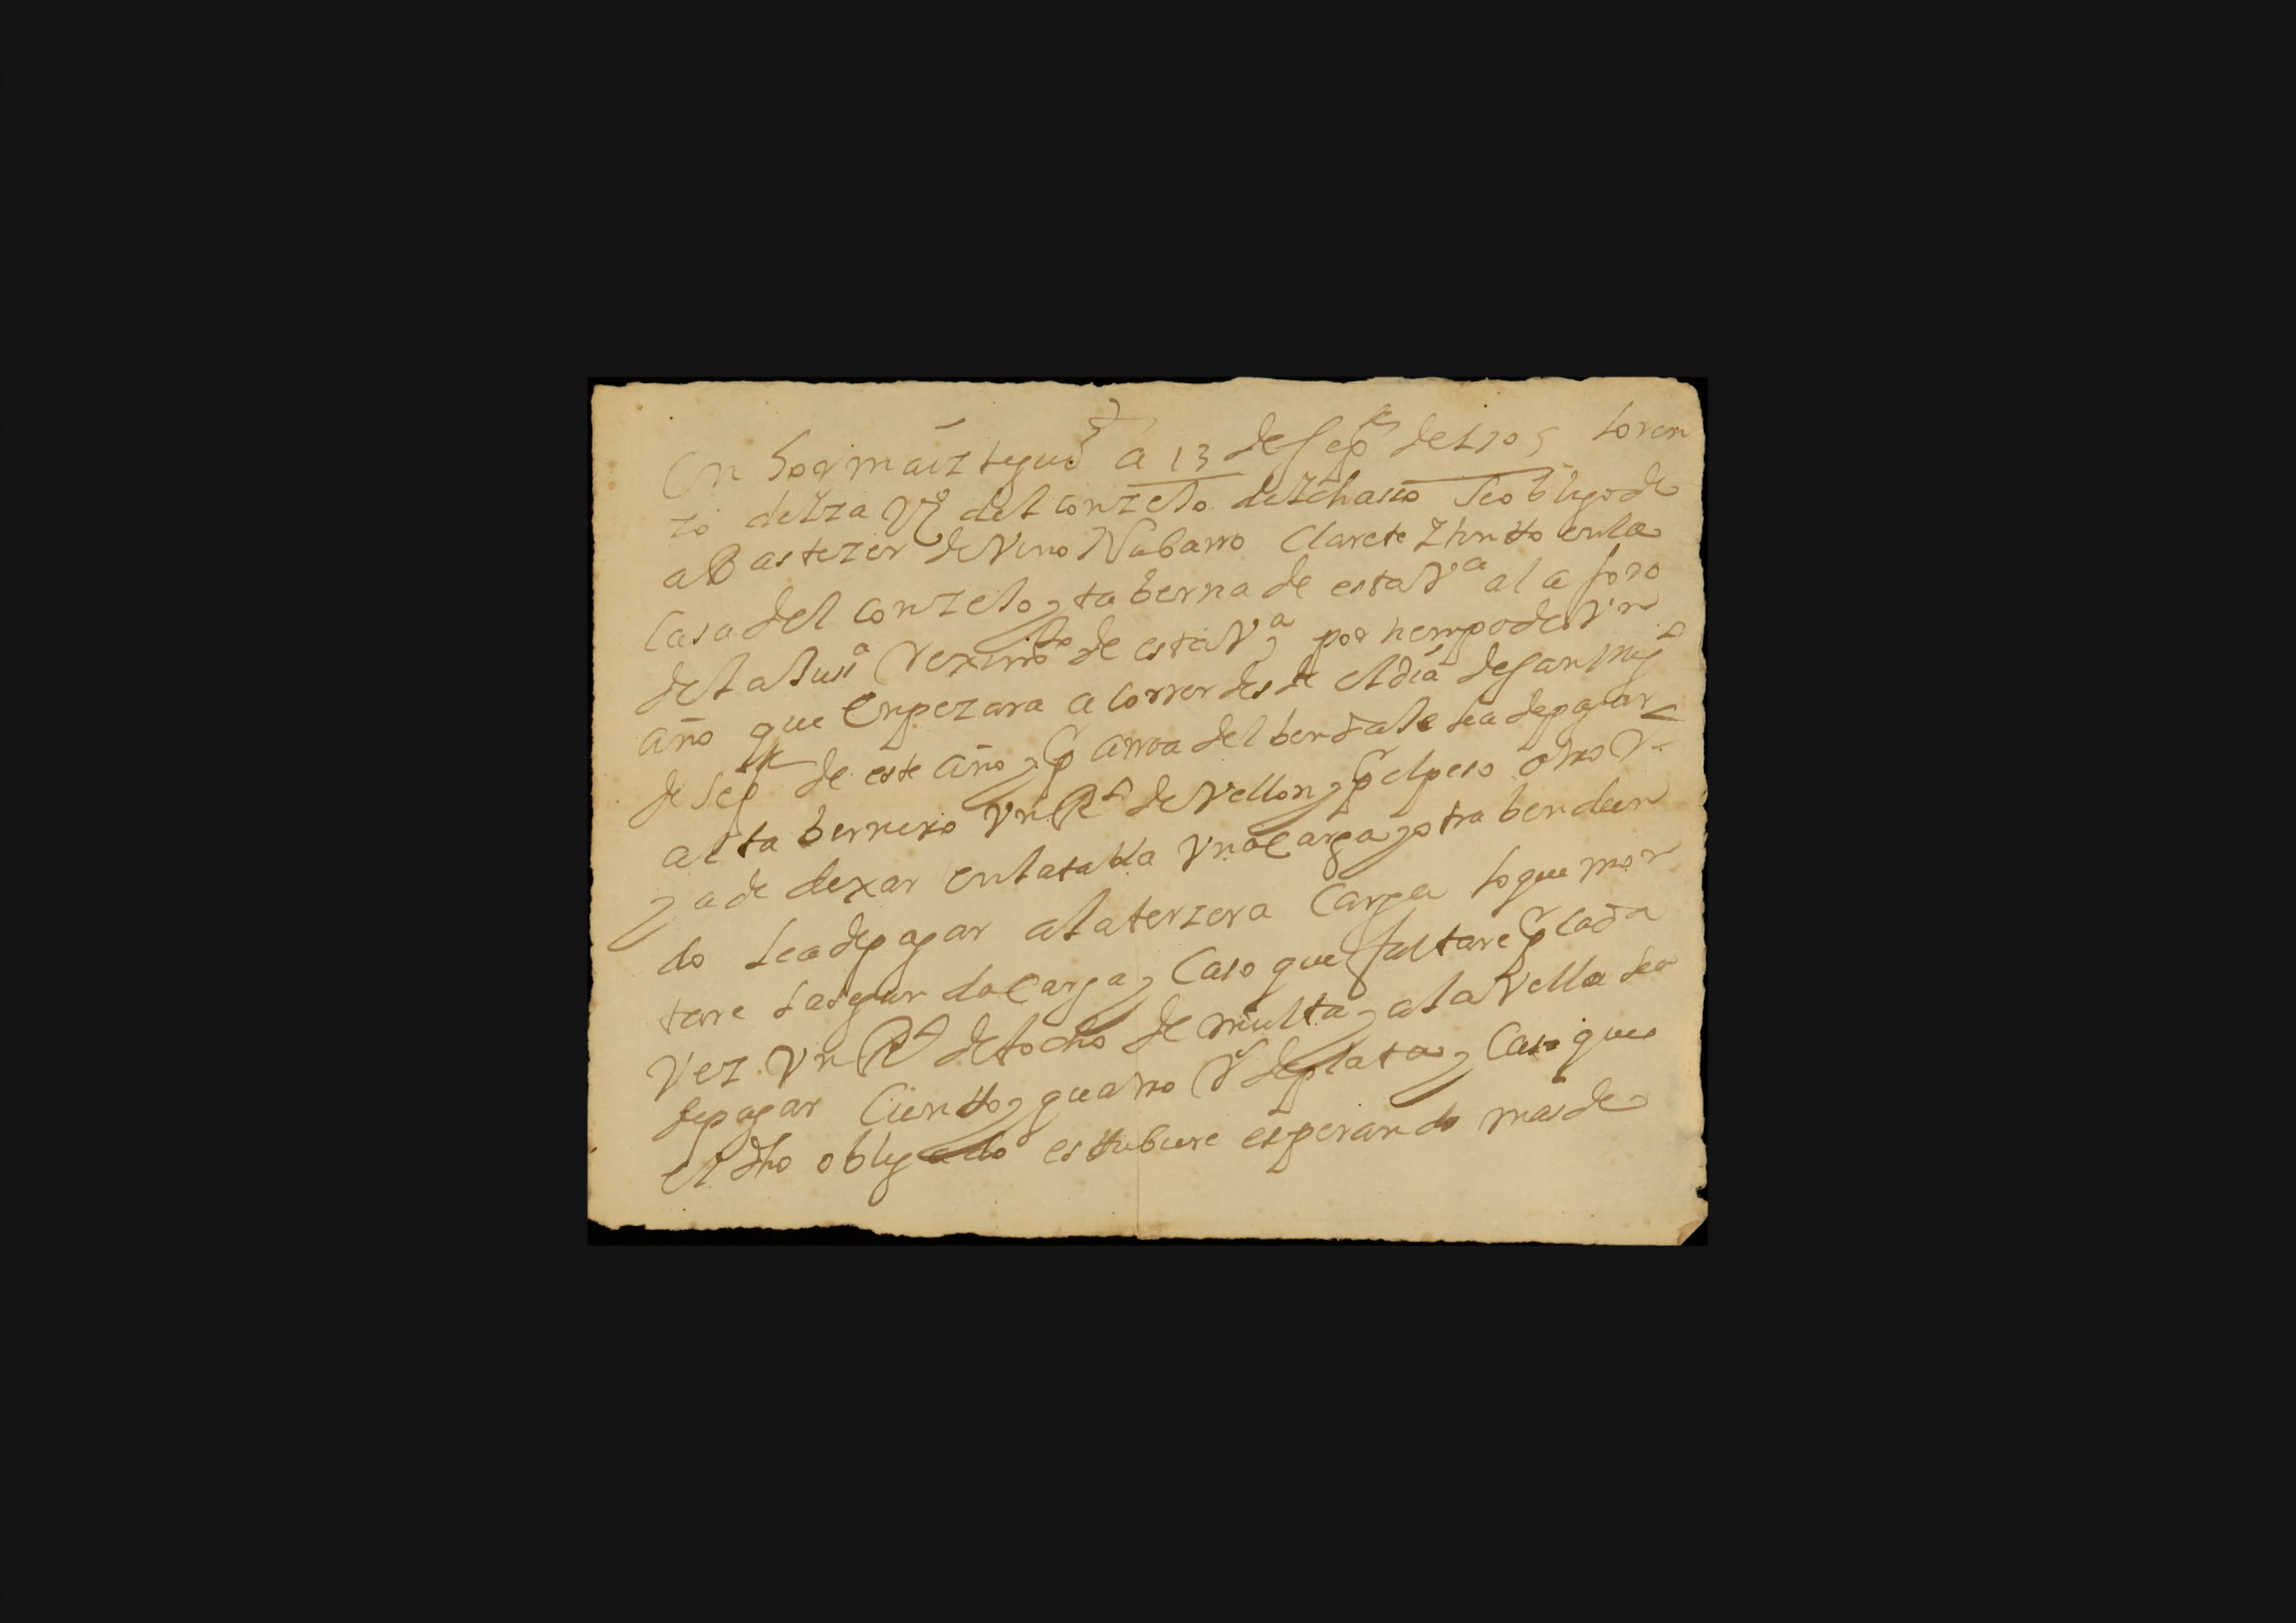 En hormaiztegui a 13 de Sepe de 1705 Loren
zo de Yza Vo del conzejo de Ychaso Se obligo de
aBastezer de Vino Nabarro Clarete Ytintto en la
Casa del conzejo y taberna de esta Va al aforo
de la Jusa y reximto de esta Va y por tiempo de Vn
año que Enpezara a correr desde el dia de san migl
de Sepe de este año y Pr arroa del bendale sea de pagar
al tabernero Vn Rl de Vellon y Pr el peso otro
y a de dexar en la tabla Vna Carga y otra bendien
do sea de pagar a la terzera Carga lo que mon
tare la segunda Carga y Caso que faltare Pr cada
Vez Vn Rl de a ocho de multa y a la Villa sea
de pagar Cientto y quatro Rs de plata y Caso que
el dho obligado esttubiere esperando mas de